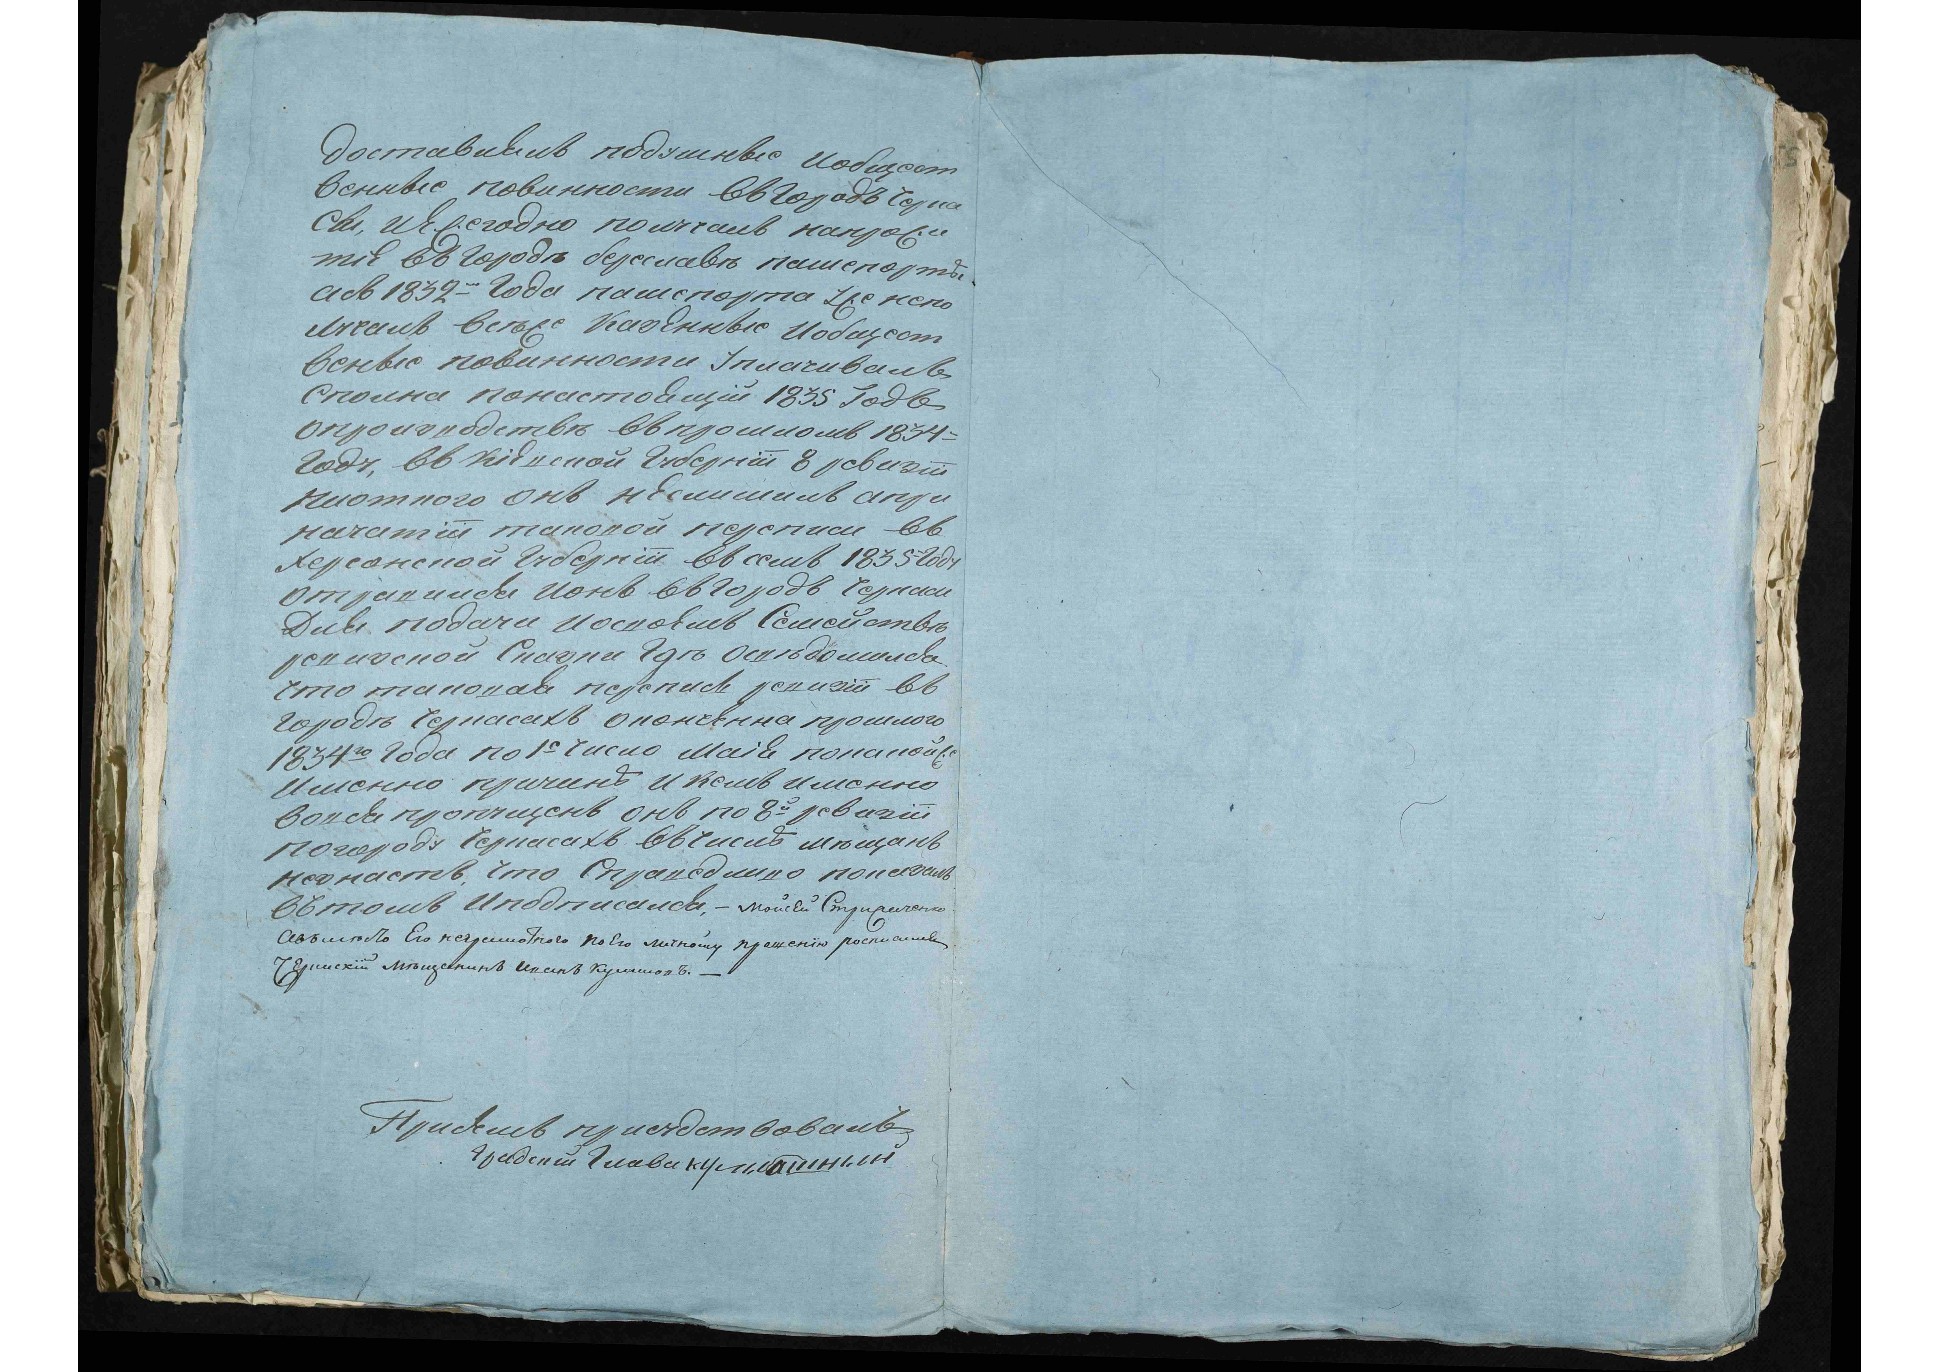 доставлялъ подушные Иобщест
венные повинности ВъГородъ Черка
сы, ИЕжегодно получалъ напрожи
тіе ВъГородѣ бериславѣ пашспортъ
асъ 1832го Года пашспорта Уже непо
лучалъ всѣже Казенные Иобщест
венные повинности Уплачивалъ
Сполна понастоящій 1835 Годъ
опроизводствѣ Въпрошломъ 1834м
Году, Въ Кіевской Губерніи 8 ревизіи
ниоткого онъ неслишалъ апри
начатіи таковой переписи Въ
Херсонской Губерніи Въсемъ 1835 Году
отправился Ионъ ВъГородъ Черкасы
Для подачи Освоемъ Семействѣ
ревизской Сказки Гдѣ Освѣдомился
что таковая перепись ревизіи Въ
Городѣ Черкасахъ оконченна прошлого
1834го Года по 1е Число Маія покакойже
Именно причинѣ И Кемъ Именно
вовся пропущенъ онъ по 8й ревизіи
погороду Черкасахъ Въчислѣ мѣщанъ
незнаетъ, Что Справедливо показалъ
Вътомъ Иподписался, – Мойсей Стрижаченко
авъмѣсто Его неграмотного по Его личному прошенію росписался
Черкаскій Мѣщанинъ Иванъ –
Присемъ присудствовалъ
Градскій Глава